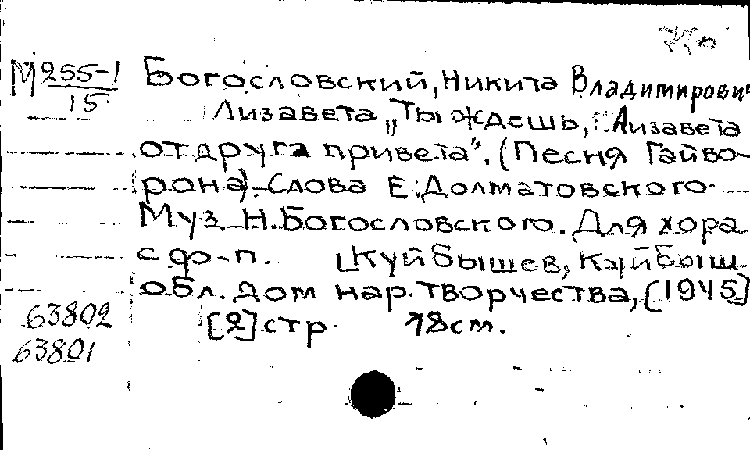 М 255-1 Богословский, Никита Владимирович
15 Лизавета „Ты ждешь, Лизавета
от друга привета". (Песня Гайво-
рона). Слова Е. Долматовского.
Муз. Н. Богословского. Для хора
с ф-п. Куйбышев, Куйбыш.
обл. дом нар. творчества, [1945]
63802 [2] стр. 18 см.
63801